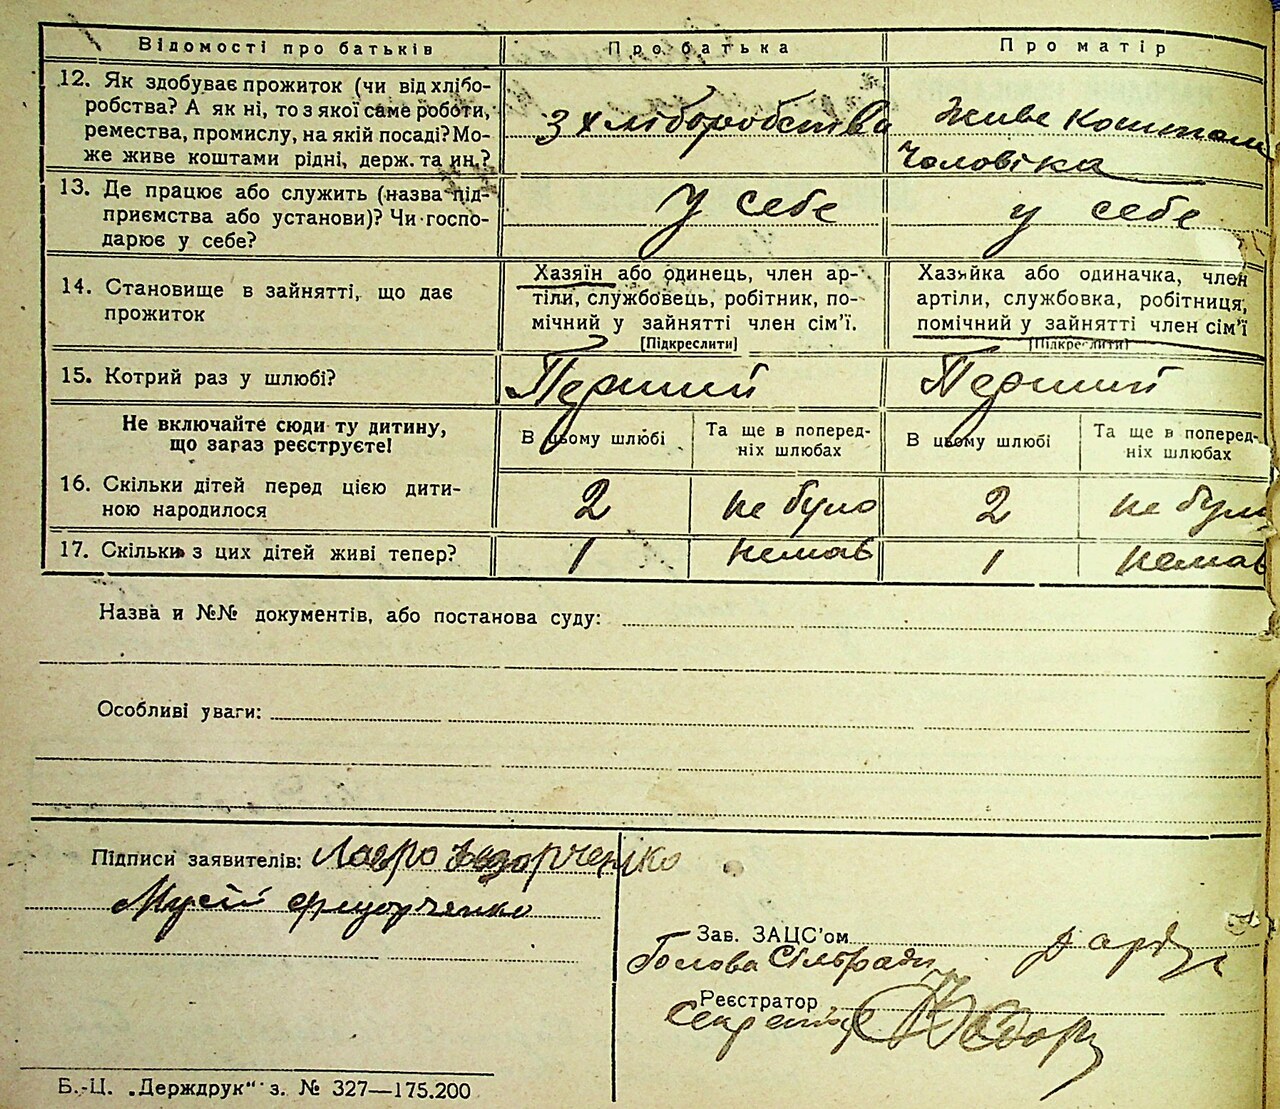 Відомості про батьків
Про батька
Про матір
12. Як здобуває прожиток (чи від хлібо-
робства? А як ні, то з якої саме роботи,
ремества, промислу, на якій посаді? Мо-
же живе коштами рідні, держ. та ин.?
З хліборобства
Живе коштом
чоловіка
13. Де працює або служить (назва під-
приємства або установи)? Чи госпо-
дарює у себе?
У себе
у себе
14. Становище в зайнятті, що дає
прожиток
Хазяїн або одинець, член ар-
тіли, службовець, робітник, по-
мічний у зайнятті член сім'ї.
[Підкреслити]
Хазяйка або одиначка, член
артіли, службовка, робітниця,
помічний у зайнятті член сім'ї
[Підкреслити]
15. Котрий раз у шлюбі?
Перший
Перший
Не включайте сюди ту дитину,
що зараз реєструєте!
В цьому шлюбі
Та ще в поперед-
ніх шлюбах
В цьому шлюбі
Та ще в поперед-
ніх шлюбах
16. Скільки дітей перед цією дити-
ною народилося
2
не було
2
не було
17. Скільки з цих дітей живі тепер?
1
немає
1
немає
Назва и №№ документів, або постанова суду:
Особливі уваги:
Підписи заявителів: Лавро
Мусій
Зав. ЗАЦС'ом
Голова Сільради
Реєстратор
Секретар
Б.-Ц. „Держдрук" з. № 327—175.200